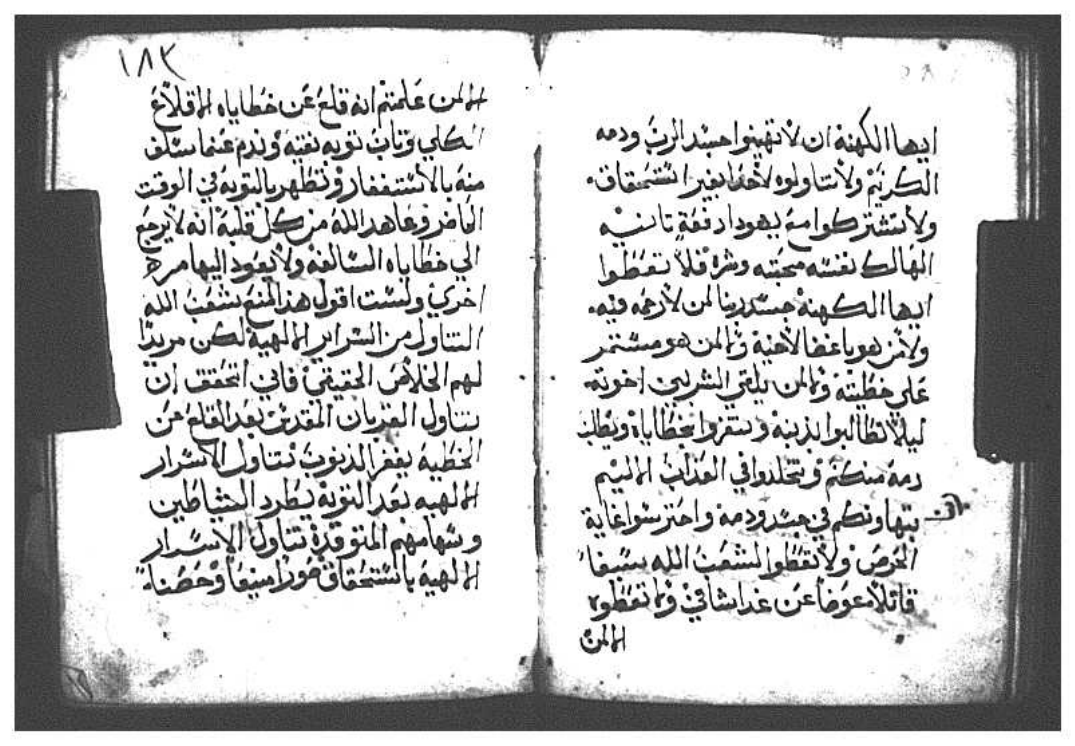 ايها الكهنة ان لا تهينوا جسد الرب ودمه
الكريم ولا تناولوه لاحد بغير استحقاق.
ولا تشتركوا مع يهودا دفعة تانيه
الهالك نفسه بمحبته وشره فلا تعطوا
ايها الكهنة جسد ربنا لمن لا رحمه فيه.
ولا من هو باغضا لاخيه ولا لمن هو مستمر
على خطيته ولا لمن يلقي الشر بين اخوته.
ليلا تطالبوا بذنبه وتتقزوا بخطاياه ويطلب
دمه منكم وتتخلدوا في العذاب الاليم
بتهاونكم في جسده ودمه واحترسوا غاية
الحرص ولا تعطوا لشعب الله سيفا
قاتلا عوضا عن غدا شافي ولا تعطوه
الا لمن
١٨٣
الا لمن علمتم انه قلع عن خطاياه الاقلاع
الكلي وتاب توبه نقيه وندم عنما سلف
منه بالاستغفار وتطهر بالتوبه في الوقت
الحاضر وعاهد الله من كل قلبه انه لا يرجع
الي خطاياه السالفه ولا يعود اليها مره
اخري ولست اقول هذا لامنع شعب الله
التناول من السراير الالهية لكن مريدا
لهم الخلاص الحقيقي فاني اتحقق ان
تناول القربان المقدس بعد القلع عن
الخطيه يغفر الذنوب تناول الاسرار
الالهيه بعد التوبة يطرد الشياطين
وسهامهم المتوقدة تناول الاسرار
الالهية باستحقاق صورا منيعا وحصنا